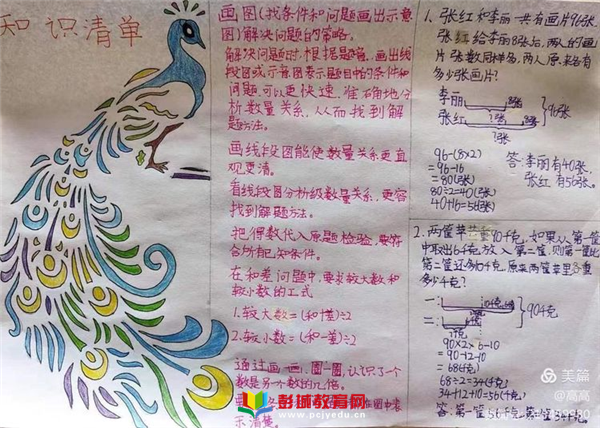 知识清单
画图(找条件和问题画出示意
图)解决问题的策略。
解决问题时,根据题意,画出线
段图或示意图表示题目中的条件和
问题,可以更快速、准确地分
析数量关系,从而找到解
题方法。
画线段图能使数量关系更直
观更清。
看线段图分析数量关系,更容
找到解题方法。
把得数代入原题检验,要符
合所有已知条件。
在和差问题中,要求较大数和
较小数的公式
1.较大数=(和+差)÷2
2.较小数=(和-差)÷2
通过画一画,圈一圈,认识了一个
数是另一个数的几倍。
示清楚。
1、张红和李丽一共有画片96张,
张红给李丽8张后,两人的画
片张数同样多,两人原来各有
多少张画片?
李丽
张红
8张
?张
96张
96-(8×2)
=96-16
=80(张)
80÷2=40(张)
40+16=56(张)
答:李丽有40张,
张红有56张。
2.两筐苹果重90千克,如果从第一筐
中取出6千克放入第二筐,则第一筐比
第二筐还多10千克,原来两筐苹果各重
多少千克?
一:
二:
90千克
=68(千克)
68÷2=34(千克)
34+12+10=56(千克)
答:第一筐56千克,第二筐34千克。
彭城教育网
www.pcjyedu.cn
美篇
@高高